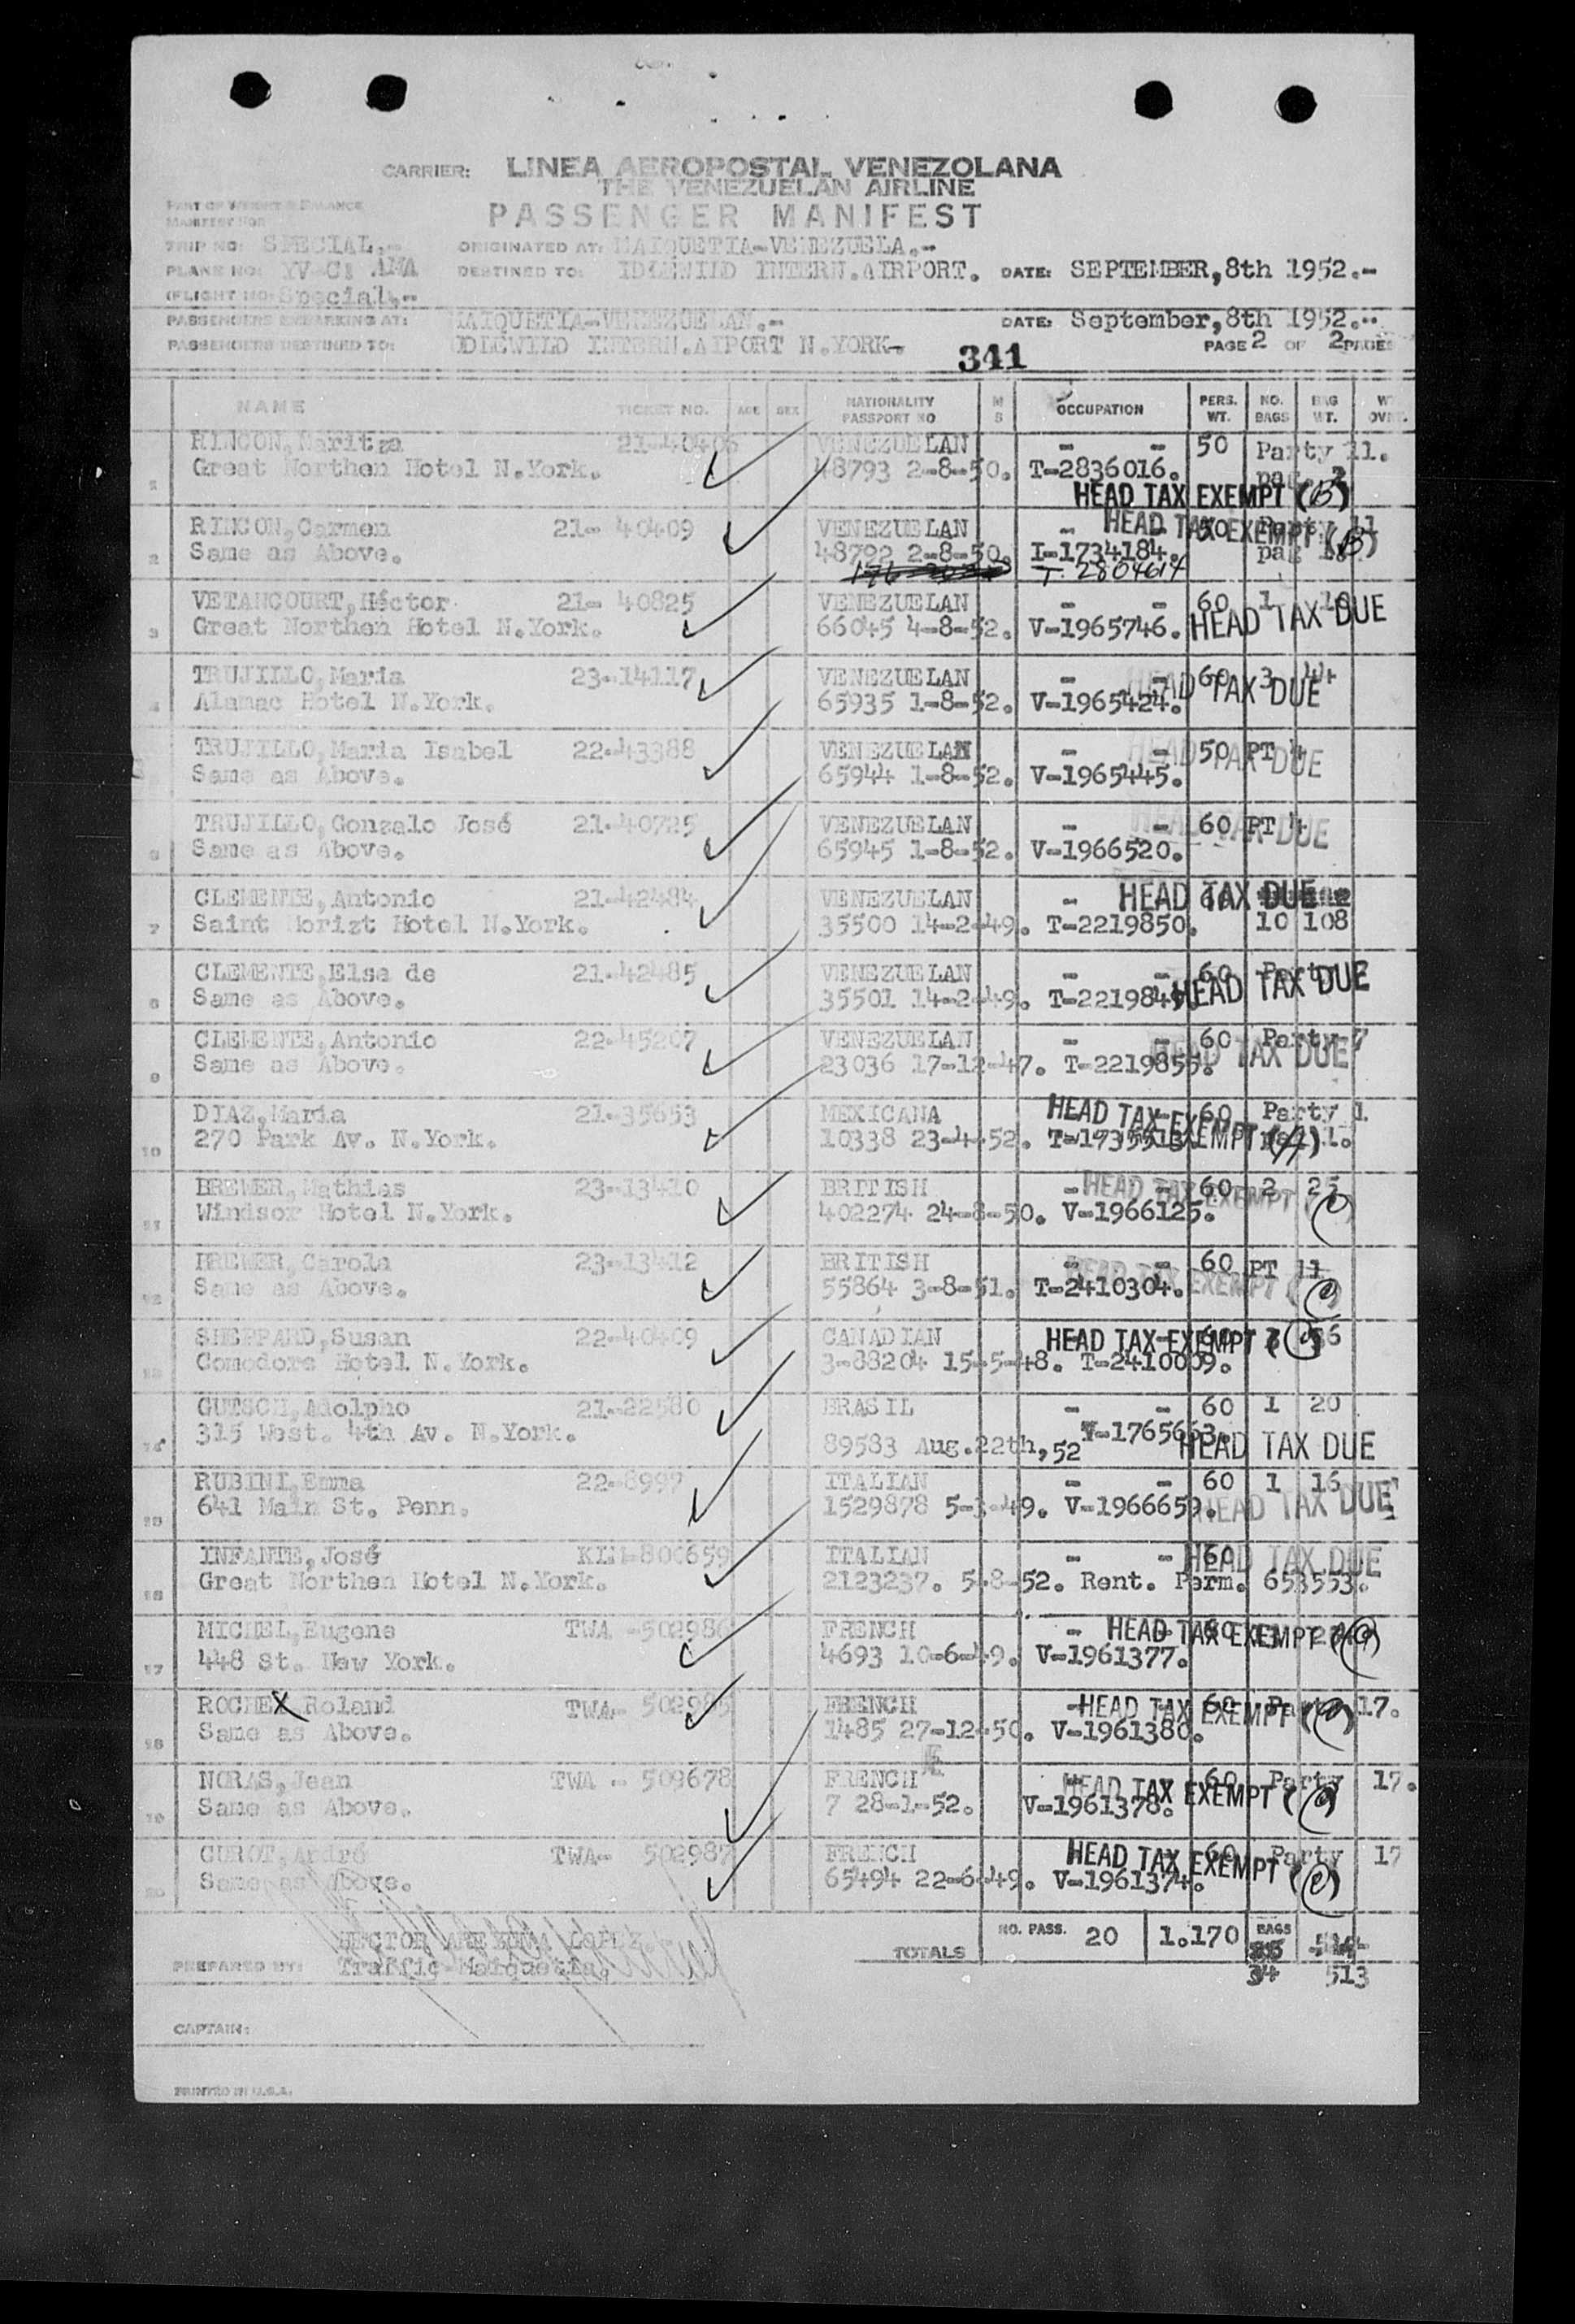 CARRIER: LINEA AEROPOSTAL VENEZOLANA
THE VENEZUELAN AIRLINE
PART OF WEIGHT & BALANCE
MANIFEST FOR
PASSENGER MANIFEST
TRIP NO: SPECIAL.- ORIGINATED AT: MAIQUETIA-VENEZUELA.-
PLANE NO: YV-C: AMA DESTINED TO: IDLEWILD INTERN.AIRPORT. DATE: SEPTEMBER,8th 1952.-
(FLIGHT NO: Special.-
PASSENGERS EMBARKING AT: MAIQUETIA-VENEZUELAN.- DATE: September,8th 1952.-
PASSENGERS DESTINED TO: ODLEWILD INTERN.AIPORT N.YORK-. 341 PAGE 2 OF 2 PAGES
NAME TICKET NO. AGE SEX NATIONALITY PASSPORT NO M S OCCUPATION PERS. WT. NO. BAGS BAG WT. WT OVWT.
RINCON,Maritza 21-40406 VENEZUELAN - - 50 Party 11.
Great Northen Hotel N.York. 48793 2-8-50. T-2836016. pag.
HEAD TAX EXEMPT (B)
RINCON,Carmen 21- 40409 VENEZUELAN - HEAD TAX EXEMPT (B) 50 Party 11
2 Same as Above. 48792 2-8-50. I-1734184. pag
T-2804614
VETANCOURT,Héctor 21- 40825 VENEZUELAN - - 60 1 10
3 Great Northen Hotel N.York. 66045 4-8-52. V-1965746. HEAD TAX DUE
TRUJILLO,Maria 23-14117 VENEZUELAN - - 60 3 44
4 Alamac Hotel N.York. 65935 1-8-52. V-1965424. HEAD TAX DUE
TRUJILLO,Maria Isabel 22-43388 VENEZUELAN - - 50 PT 4
Same as Above. 65944 1-8-52. V-1965445. HEAD TAX DUE
TRUJILLO,Gonzalo José 21-40725 VENEZUELAN - - 60 PT 4
6 Same as Above. 65945 1-8-52. V-1966520. HEAD TAX DUE
CLEMENTE,Antonio 21-42484 VENEZUELAN - HEAD TAX DUE
7 Saint Morizt Hotel N.York. 35500 14-2-49. T-2219850. 10 108
CLEMENTE,Elsa de 21-42485 VENEZUELAN - - 60 Party
8 Same as Above. 35501 14-2-49. T-221984 HEAD TAX DUE
CLEMENTE,Antonio 22-45207 VENEZUELAN - - 60 Party 7
9 Same as Above. 23036 17-12-47. T-2219855. HEAD TAX DUE
DIAZ,Maria 21-35653 MEXICANA HEAD TAX EXEMPT 60 Party 1
10 270 Park Av. N.York. 10338 23-4-52. T-1735513.
BREWER,Mathias 23-13410 BRITISH - HEAD TAX EXEMPT (C) 60 2 25
11 Windsor Hotel N.York. 402274 24-8-50. V-1966125.
BREWER,Carola 23-13412 BRITISH - - 60 PT 11
12 Same as Above. 55864 3-8-51. T-2410304. HEAD TAX EXEMPT (C)
SHEPPARD,Susan 22-40409 CANADIAN HEAD TAX EXEMPT
13 Comodore Hotel N.York. 3-88204 15-5-48. T-2410009.
GUTSCH,Adolpho 21-22580 BRASIL - - 60 1 20
14 315 West. 4th Av. N.York. 89583 Aug.22th,52 V-1765663. HEAD TAX DUE
RUBINI,Emma 22-8997 ITALIAN - - 60 1 16
15 641 Main St. Penn. 1529878 5-3-49. V-1966659. HEAD TAX DUE
INFANTE,José KLM-806659 ITALIAN - - 60 HEAD TAX DUE
16 Great Northen Hotel N.York. 2123237. 5-8-52. Rent. Perm. 653553.
MICHEL,Eugene TWA -502986 FRENCH - HEAD TAX EXEMPT (C)
17 448 St. New York. 4693 10-6-49. V-1961377.
ROCHEX Roland TWA- 502985 FRENCH HEAD TAX EXEMPT (C) 60 Party 17.
18 Same as Above. 1485 27-12-50. V-1961380.
NORAS,Jean TWA - 509678 FRENCH - 60 Party 17.
19 Same as Above. 7 28-1-52. V-1961378. HEAD TAX EXEMPT (C)
CUROT,André TWA- 502987 FRENCH HEAD TAX EXEMPT (C) 60 Party 17
20 Same as Above. 65494 22-6-49. V-1961374.
TOTALS NO. PASS. 20 1.170 BAGS
HECTOR LOPEZ.
PREPARED BY: Traffic Maiquetia. 34 513
CAPTAIN:
PRINTED IN U.S.A.